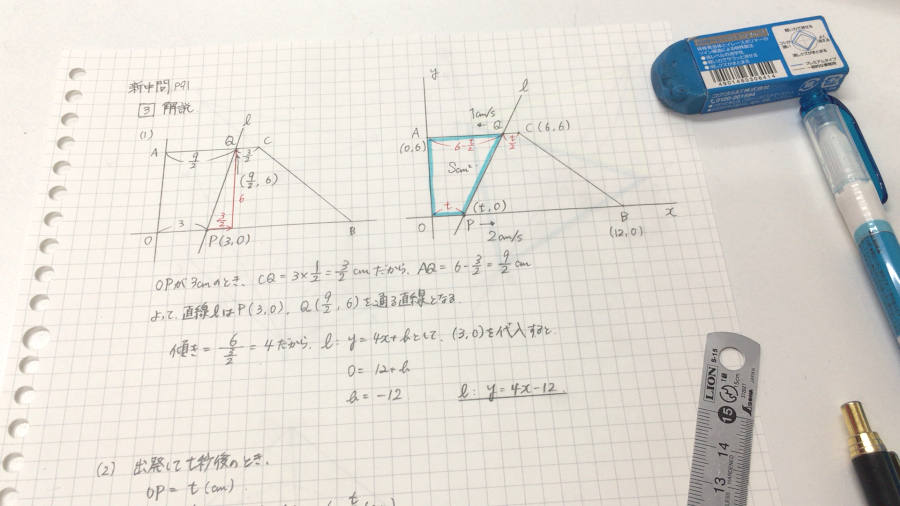 新中問 P91
3 解説
(1)
l
A
9/2
Q
3/2
C
(9/2, 6)
6
3
3/2
O
P(3,0)
B
y
l
1cm/s
A
(0,6)
6-t/2
Q
t/2
C(6,6)
Scm²
t
(t,0)
O
P
2cm/s
B
(12,0)
x
OPが3cmのとき、CQ=3×1/2=3/2cmだから、AQ=6-3/2=9/2cm
よって、直線lはP(3,0)、Q(9/2,6)を通る直線となる。
傾き=6/(3/2)=4だから、l: y=4x+bとして、(3,0)を代入すると、
0=12+b
b=-12 l: y=4x-12.
(2) 出発してt秒後のとき、
OP=t(cm)
4901480306414
LION
S-15
15
14
13
15cm
JAPAN